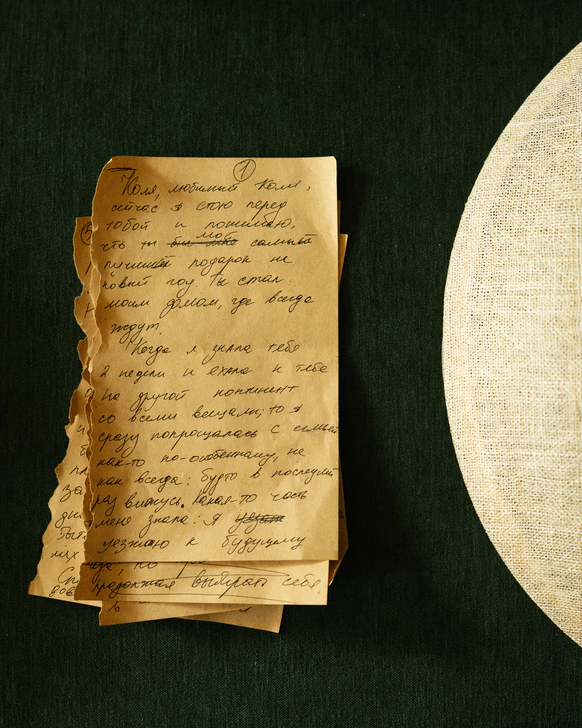 1
Коля, любимый Коля,
сейчас я стою перед
тобой и понимаю,
что ты был мне мой самый
лучший подарок на
новый год. Ты стал
моим домом, где всегда
ждут.
Когда я знала тебя
2 недели и ехала к тебе
на другой континент
со всеми вещами, то я
сразу попрощалась с семьёй
как-то по-особенному, не
как всегда: будто в последний
раз вижусь. Какая-то часть
меня знала: Я уезжаю
уезжаю к будущему
по
продолжая выбирать себя.